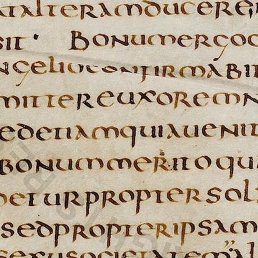 atalteramducerei
sit· Bonumergoc
ngelioconfirmabit
mittereuxoremn
edetiamquiauenit
bonummeritoqu
deturproptersol
sedpropteripsam